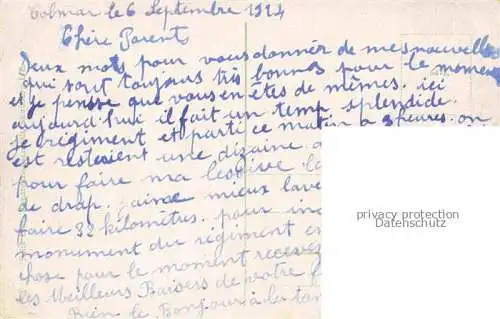 Colmar le 6 Septembre 1924
Chère Parents
Deux mots pour vous donner de mes nouvelles
qui sont toujours très bonnes pour le moment
et je pensse que vous en êtes de mêmes. ici
aujourd'hui il fait un temp splendide.
le régiment et parti ce matin a 3 heures. on
est restaient une dizaine
pour faire ma lessive
de drap. j'aime mieux lave
faire 32 kilomètres. pour
monument du régiment en
chose pour le moment recevez
les Meilleurs Baisers de votre
Bien le Bonjour à la tan
privacy protection
Datenschutz